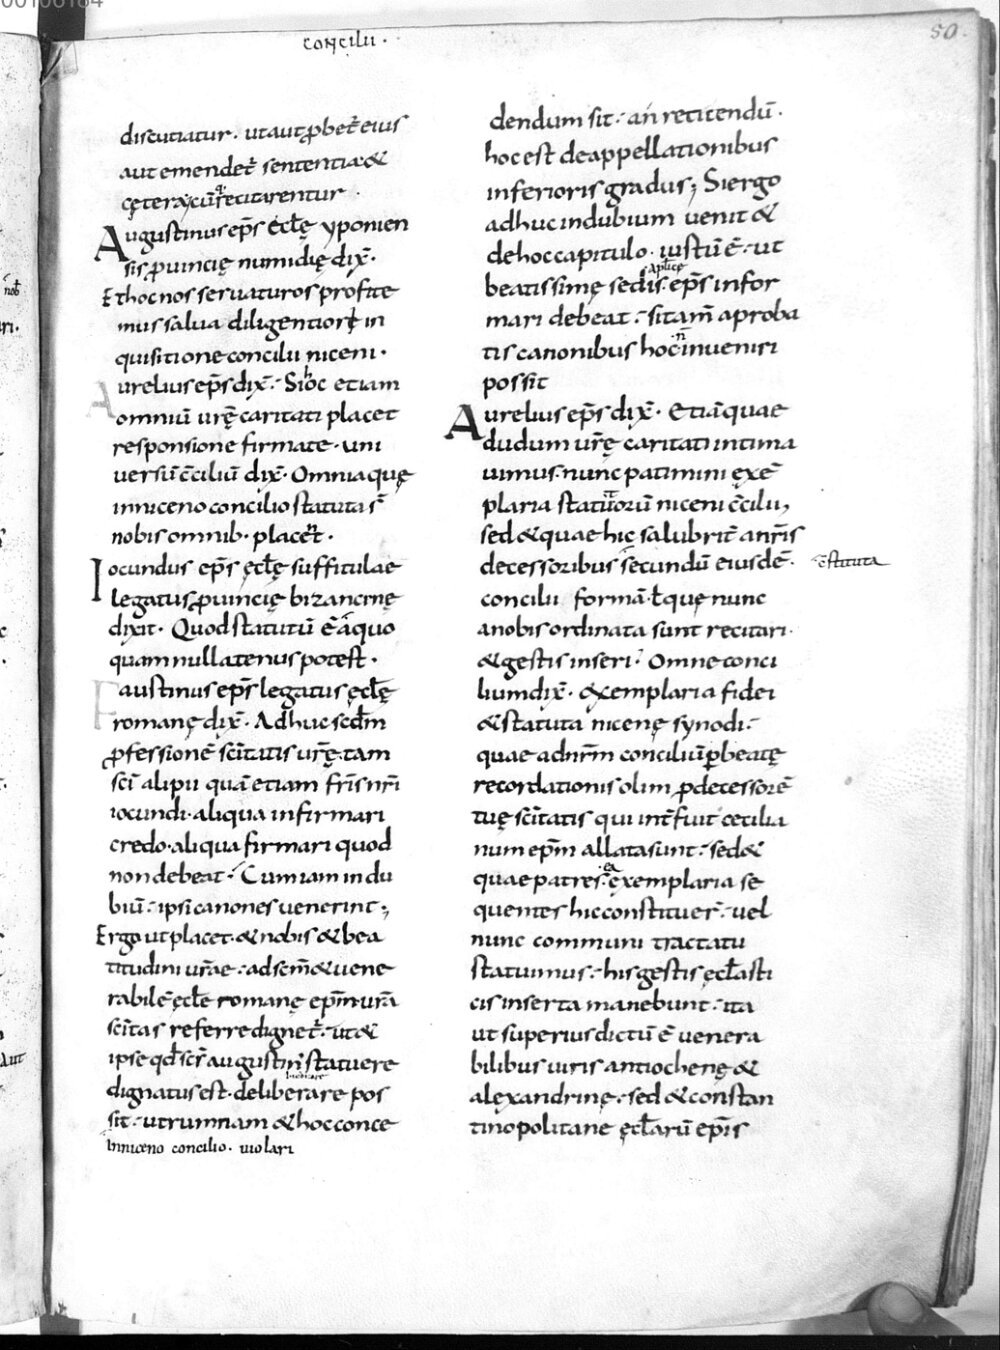 00106184
50.
concilii ·
discutiatur · ut aut ꝓbet̄ eius
aut emendet̄ sententia· &
cęteręcū recitarentur ·
Augustinus ep̄s ęcl̄ę yponien
sis ꝓuincię numidię dix̄ ·
Et hoc nos seruaturos profite
mur salua diligentiore in
quisitione concilii niceni ·
Aurelius ep̄s dix̄ · Si hoc etiam
omniū ur̄ę caritati placet
responsione firmate · uni
uersū c̄ciliū dix̄ · Omnia quę
in niceno concilio statuta s̄
nobis omnib· placent ·
Iocundus ep̄s ęcl̄ę suffitulae
legatus ꝓuincię bizancenę
dixit · Quod statutū ē a quo
quam nullatenus potest ·
Faustinus ep̄s legatus ęcl̄ę
romanę dix̄ · Adhuc scd̄m
ꝓfessionē scītatis ur̄ę· tam
scī alipii quā etiam fr̄is nr̄i
iocundi· aliqua infirmari
credo· aliqua firmari quod
non debeat · Cum iam in du
biū · ipsi canones uenerint ;
Ergo ut placet· & nobis & bea
titudini ur̄ae · ad scm̄ & uene
rabilē ęcl̄ę romanę ep̄m· ur̄a
scītas referre dignet̄ · ut &
ipse qd̄ scs̄ augustin' statuere
dignatus est· deliberare pos
sit · utrumnam & hoc conce
in niceno concilio · uiolari
dendum sit · an reticendū ·
hoc est de appellationibus
inferioris gradus ; Si ergo
adhuc in dubium uenit &
de hoc capitulo · iustū ē · ut
aplicę
beatissimę sedis· ep̄s infor
mari debeat · si tam̄ aproba
tis canonibus hoc inueniri
n̄
possit
Aurelius ep̄s dix̄ · Etiā quae
dudum ur̄ę caritati intima
uimus· nunc patimini exē
plaria statutorū niceni c̄cilii,
sed & quae hic salubrit̄ a nr̄is
decessoribus secundū eiusdē · c̄stituta
concilii formā· t̄que nunc
a nobis ordinata sunt recitari·
& gestis inseri · Omne conci
lium dix̄ · exemplaria fidei
& statuta nicenę synodi ·
quae ad nr̄m conciliū ꝑ beatę
recordationis olim p̄decessorē
tuę scītatis qui int̄fuit cecilia
num ep̄m allata sunt · sed &
quae patres· ea exemplaria se
quentes hic constituer̄ · uel
nunc communi tractatu
statuimus · his gestis ęcl̄asti
cis inserta manebunt · ita
ut superius dictū ē uenera
bilibus uiris antiochenę &
alexandrinę · sed & constan
tinopolitane ęcl̄arū ep̄is